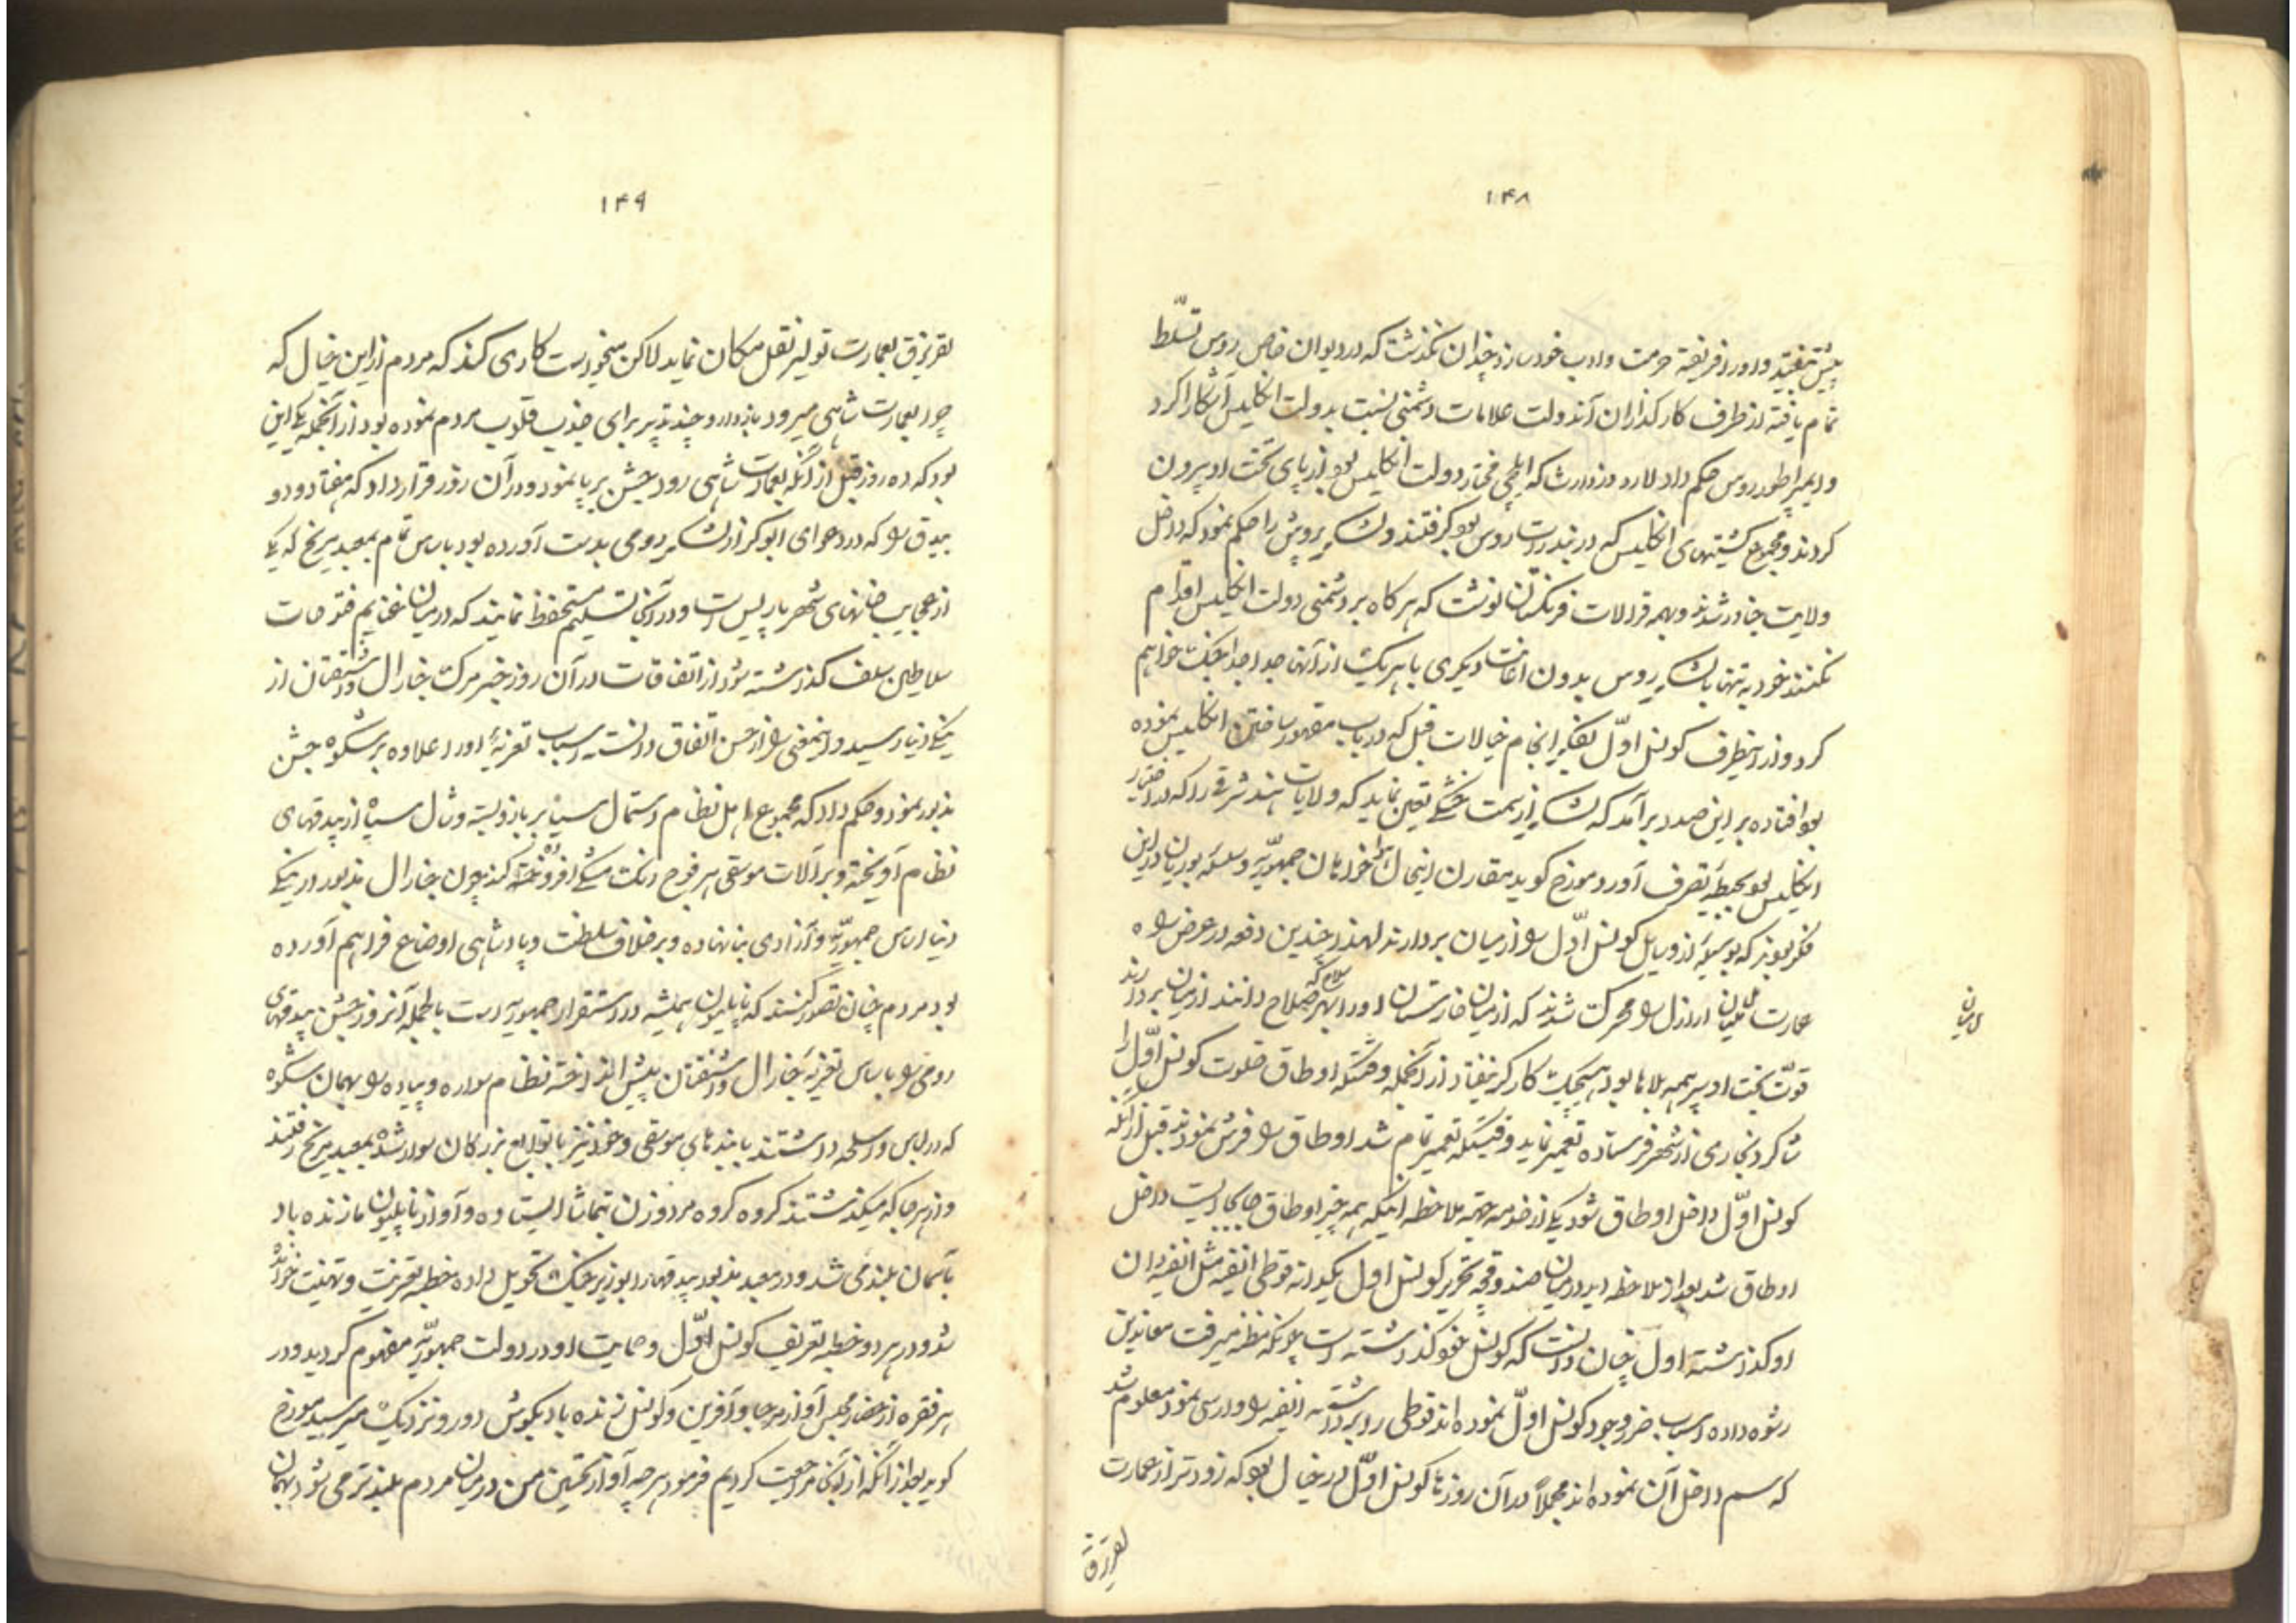 ۱۴۸
پیش نفیتد و او را فریفتهٔ حرمت و ادب خود سازد چندان نگذشت که در دیوان خاص روس تسلّط
تمام یافته از طرف کارگذاران آندولت علامات دشمنی نسبت بدولت انگلیس آشکارا کرد
و ایمپراطور روس حکم داد لارد وزوارث که ایلچی مختار دولت انگلیس بود از پای تخت او بیرون
کردند و مجموع کشتیهای انگلیس که در بندرات روس بود گرفتند و لشکر پروش را حکم نمود که داخل
ولایت حناور شدند و بهمه قرالات فرنگستان نوشت که هرگاه بر دشمنی دولت انگلیس اقدام
نکنند خود به تنها با لشکر روس بدون اعانت دیگری با هر یک از آنها جدا جدا جنگ خواهم
کرد و از اینطرف کونسل اوّل بفکر انجام خیالات قبل که در باب مقهور ساختن انگلیس نموده
بود افتاده بر این صدد برآمد که لشکر از سمت خشکی تعیین نماید که ولایات هند شرقی را که در اختیار
انگلیس بود بحیطهٔ تصرف آورد مورخ گوید مقارن اینحال هوا خواهان جمهوریّه و سلسلهٔ بوربان در این
فکر بودند که بوسیلهٔ از وسایل کونسل اوّل را از میان بردارند لهذا چندین دفعه در عرض راه
عمارت ملمیان اراذل را محرک شدند که از میان خارستان او را بهر سلاح که صلاح دانند از میان بردارند
ملمیان
قوّت بخت او سپر همه بلاها بود هیچیک کارگر نیفتاد از آنجمله وقتیکه اوطاق خلوت کونسل اوّل را
شاگرد نجاری از شهر فرستاده تعمیر نماید وقتیکه تعمیر تمام شد اوطاق را فرش نمودند قبل از آنکه
کونسل اوّل داخل اوطاق شود یکی از خدمه بجهة ملاحظه اینکه همه چیز اوطاق جابجاست داخل
اوطاق شد بعد از ملاحظه دید در میان صندوقچه تحریر کونسل اول یکدانه قوطی انفیه مثل انفیه دان
او گذاشته اول چنان دانست که کونسل خود گذاشته است چونکه مظنه میرفت معاندین
رشوه داده اسباب ضرر وجود کونسل اوّل نموده اند قوطی را برداشته انفیه را وارسی نمود معلوم شد
که سم داخل آن نموده اند مجملاً در آن روزها کونسل اوّل در خیال بود که زودتر از عمارت
لقرنرق
۱۴۹
لقرنرق بعمارت تولیر نقل مکان نماید لاکن میخواست کاری کند که مردم از این خیال که
چرا بعمارت شاهی میرود باز دارد و چند تدبیر برای جذب قلوب مردم نموده بود از آنجمله یکی این
بود که ده روز قبل از آنکه بعمارت شاهی رود جشن برپا نمود و در آن روز قرار داد که هفتاد و دو
بیدق را که در دعوای ابوکر از لشکر رومی بدست آورده بود باساس تمام بمعبد مریخ که یکی
از عجایب خانهای شهر پاریس است و در آنجا تسلیم مستحفظ نمایند که در میان غنایم فتوحات
سلاطین سلف گذاشته شود از اتفاقات در آن روز خبر مرگ جنرال واشنقتان از
ینگی دنیا رسید و اینمعنی را از حسن اتفاق دانسته اسباب تعزیهٔ او را علاوه بر شکوه جشن
مذبور نمود و حکم داد که مجموع اهل نظام دستمال سیاه بر بازو بسته و شال سیاه از بیدقهای
نظام آویخته و بر آلات موسیقی هر فوج رنگ مشکی افزوده کنند چون جنرال مذبور در ینگی
دنیا اساس جمهوریّه و آزادی بنا نهاده و بر خلاف سلطنت و پادشاهی اوضاع فراهم آورده
بود مردم چنان تصور کنند که ناپلیون همیشه در استقرار جمهوریه است باالجمله آنروز جشن بیدقهای
رومی را با اساس تعزیهٔ جنرال واشنقتان پیش انداخته نظام سواره و پیاده را بهمان شکوه
که در لباس و اسلحه داشتند با بندهای موسیقی و خود نیز با توابع بزرگان سوار شده بمعبد مریخ رفتند
و از هر جا که میگذشتند گروه گروه مرد و زن بتماشا ایستاده و آواز ناپلیون ما زنده باد
بآسمان بلند می شد و در معبد مذبور بیدقها را بوزیر جنگ تحویل داده خطبه تعزیت و تهنیت خوانده
شد و در هر دو خطبه تعریف کونسل اوّل و حمایت او در دولت جمهوریّه مفهوم گردید و در
هر فقره از حضار مجلس آواز مرحبا و آفرین و کونسل زنده باد بگوش دور و نزدیک میرسید مورخ
گوید بعد از آنکه از آنجا مراجعت کردیم فرمود هر چه آواز تحسین من در میان مردم بلندتر می شود بهمان